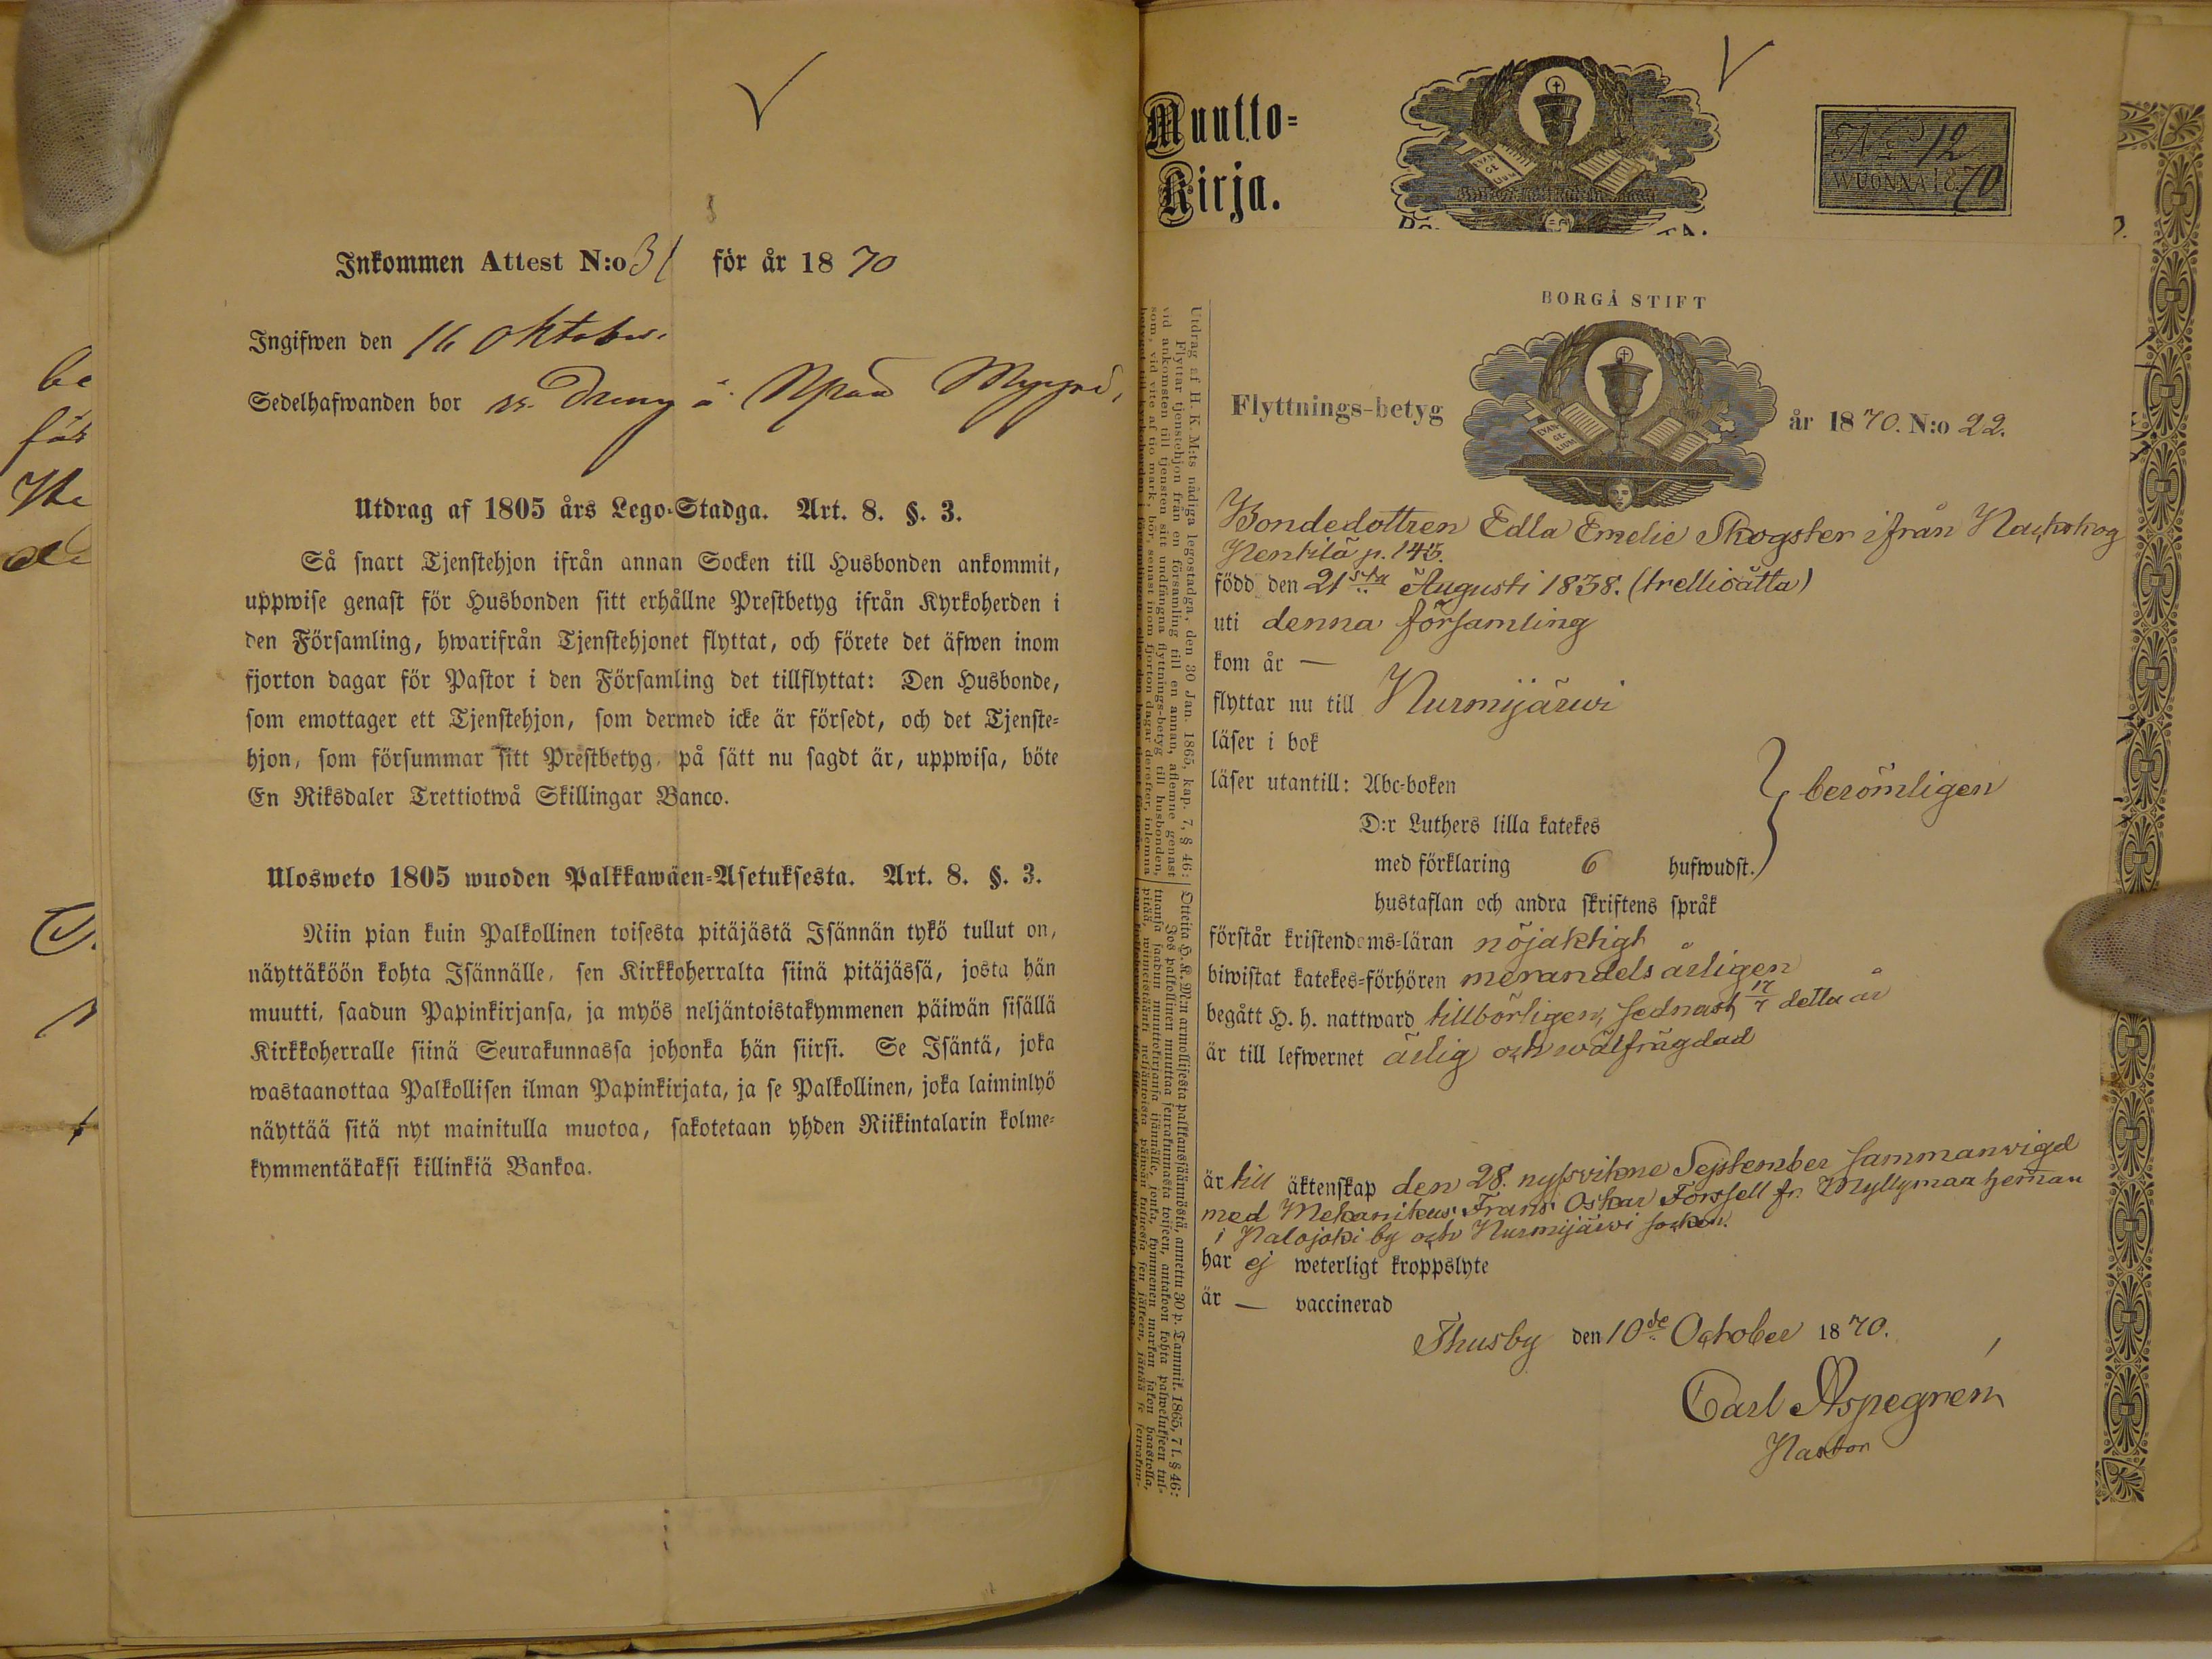 Inkommen Attest N:o 31 för år 1870
Ingifwen den 16 Oktober
Sedelhafwanden bor ss. Dreng å
Utdrag af 1805 års Lego-Stadga. Art. 8. §. 3.
Så snart Tjenstehjon ifrån annan Socken till Husbonden ankommit,
uppwise genast för Husbonden sitt erhållne Prestbetyg ifrån Kyrkoherden i
den Församling, hwarifrån Tjenstehjonet flyttat, och förete det äfwen inom
fjorton dagar för Pastor i den Församling det tillflyttat: Den Husbonde,
som emottager ett Tjenstehjon, som dermed icke är försedt, och det Tjenste=
hjon, som försummar sitt Prestbetyg, på sätt nu sagdt är, uppwisa, böte
En Riksdaler Trettiotwå Skillingar Banco.
Ulosweto 1805 wuoden Palkkawäen=Asetuksesta. Art. 8. §. 3.
Niin pian kuin Palkollinen toisesta pitäjästä Isännän tykö tullut on,
näyttäköön kohta Isännälle, sen Kirkkoherralta siinä pitäjässä, josta hän
muutti, saadun Papinkirjansa, ja myös neljäntoistakymmenen päiwän sisällä
Kirkkoherralle siinä Seurakunnassa johonka hän siirsi. Se Isäntä, joka
wastaanottaa Palkollisen ilman Papinkirjata, ja se Palkollinen, joka laiminlyö
näyttää sitä nyt mainitulla muotoa, sakotetaan yhden Riikintalarin kolme=
kymmentäkaksi killinkiä Bankoa.
Muutto=
Kirja.
EVAN
GE
LIUM
No 12
WUONNA 1870
BORGÅ STIFT
Flyttnings-betyg
EVAN-
GE-
LIUM
år 1870. N:o 22.
Bondedottren Edla Emelie Skogster ifrån Nackskog
Pentilä p. 145.
född den 21sta Augusti 1838. (trettioåtta)
uti denna församling
kom år —
flyttar nu till Nurmijärwi
läser i bok
läser utantill: Abc=boken
D:r Luthers lilla katekes
med förklaring 6 hufwudst.
berömligen
hustaflan och andra skriftens språk
förstår kristendoms=läran nöjaktigt
biwistat katekes=förhören merendels årligen
begått H. h. nattward tillbörligen, sednast 17/7 detta år
är till lefwernet ärlig och wälfrägdad
är till äktenskap den 28. nyssvikne September sammanvigd
med Mekanikus Frans Oskar Forssell fr. Myllymaa heman
i Palojoki by och Nurmijärwi socken.
har ej weterligt kroppslyte
är — vaccinerad
Thusby den 10de October 1870.
Carl Aspegren
Pastor
Utdrag af H. K. M:ts nådiga legostadga, den 30 Jan. 1865, kap. 7, § 46:
Flyttar tjenstehjon från en församling till en annan, aflemne genast
vid ankomsten till tjensten sitt undfångna flyttnings-betyg till husbonden,
som, vid vite af tio mark i bör, senast inom fjorton dagar derefter, inlemna